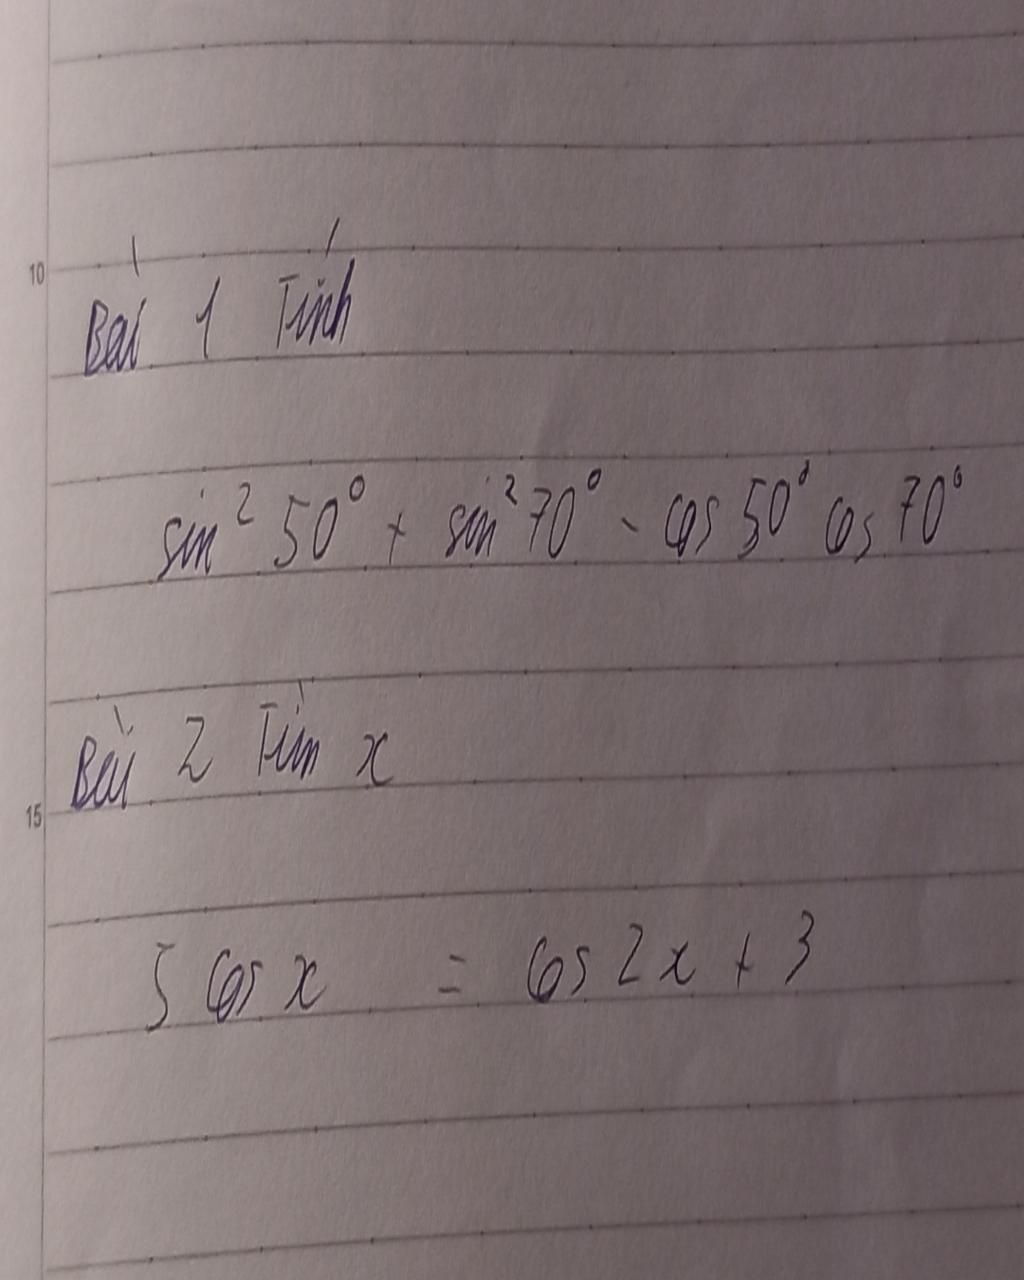 10
Bài 1 Tính
sin² 50° + sin² 70° - cos 50° cos 70°
Bài 2 Tìm x
15
5 cos x = cos 2x + 3